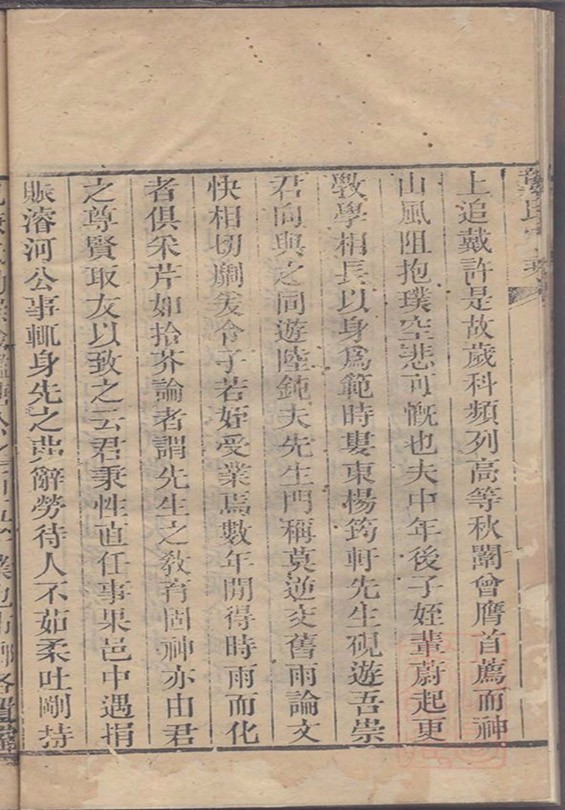 上追戴許是故歲科頻列高等秋闈曾膺首薦而神
山風阻抱璞空悲可慨也夫中年後子姪輩蔚起更
斆學相長以身爲範時婁東楊筠軒先生硯遊吾崇
君向與之同遊陸鈍夫先生門稱莫逆交舊雨論文
快相切劘爰令子若姪受業焉數年間得時雨而化
者俱采芹如拾芥論者謂先生之敎育固神亦由君
之尊賢取友以致之云君秉性直任事果邑中遇捐
賑濬河公事輒身先之弗辭勞待人不茹柔吐剛持